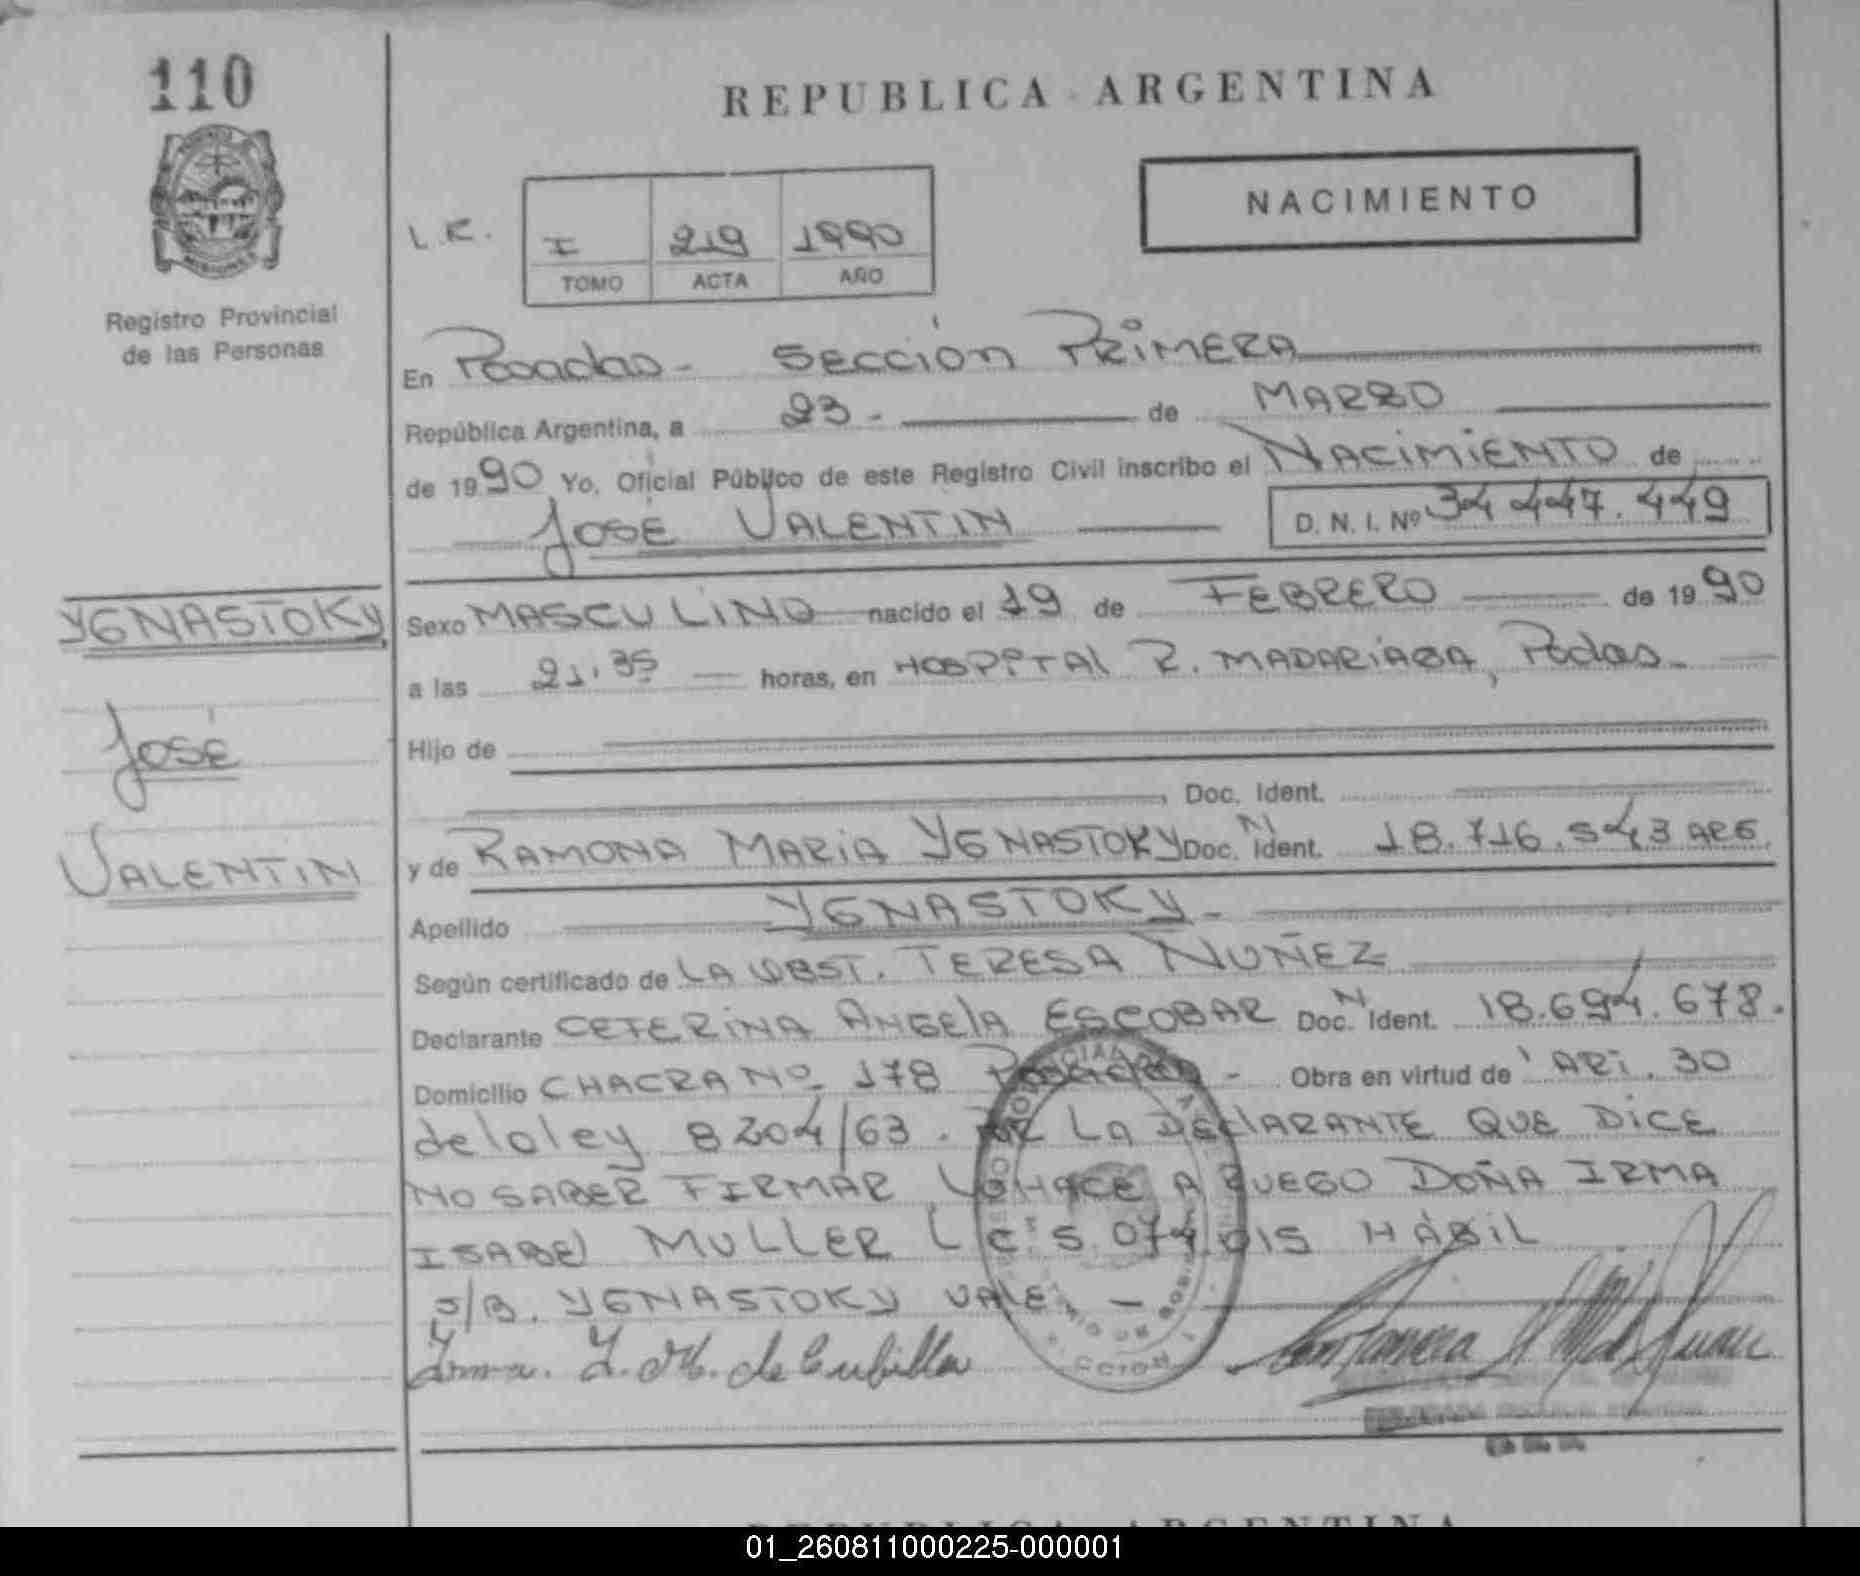 110
REPUBLICA ARGENTINA
NACIMIENTO
L.R.
I 219 1990
TOMO ACTA AÑO
MISIONES
Registro Provincial
de las Personas
En Posadas - SECCIÓN PRIMERA
República Argentina, a 23 - de MARZO
de 1990 Yo, Oficial Público de este Registro Civil inscribo el NACIMIENTO de
JOSÉ VALENTIN D. N. I. Nº 34 447.449
YGNASTOKY,
JOSÉ
VALENTIN
Sexo MASCULINO nacido el 19 de FEBRERO de 1990
a las 21.35 horas, en HOSPITAL R. MADARIAGA, Podas -
Hijo de
, Doc. Ident.
y de RAMONA MARIA YGNASTOKY Doc. N Ident. 18.716.543 ARG.
Apellido YGNASTOKY -
Según certificado de LA OBST. TERESA NUÑEZ
Declarante CETERINA ANGELA ESCOBAR Doc. N Ident. 18.694.678.
Domicilio CHACRA Nº 178 Posadas - Obra en virtud de ARt. 30
de la ley 8204/63. POR LA DECLARANTE QUE DICE
NO SABER FIRMAR LO HACE A RUEGO DOÑA IRMA
ISABEL MULLER L C 5.074.015 HÁBIL
S/B. YGNASTOKY VALE. -
Irma. I. M. de Cubilla
REPUBLICA ARGENTINA
01_260811000225-000001